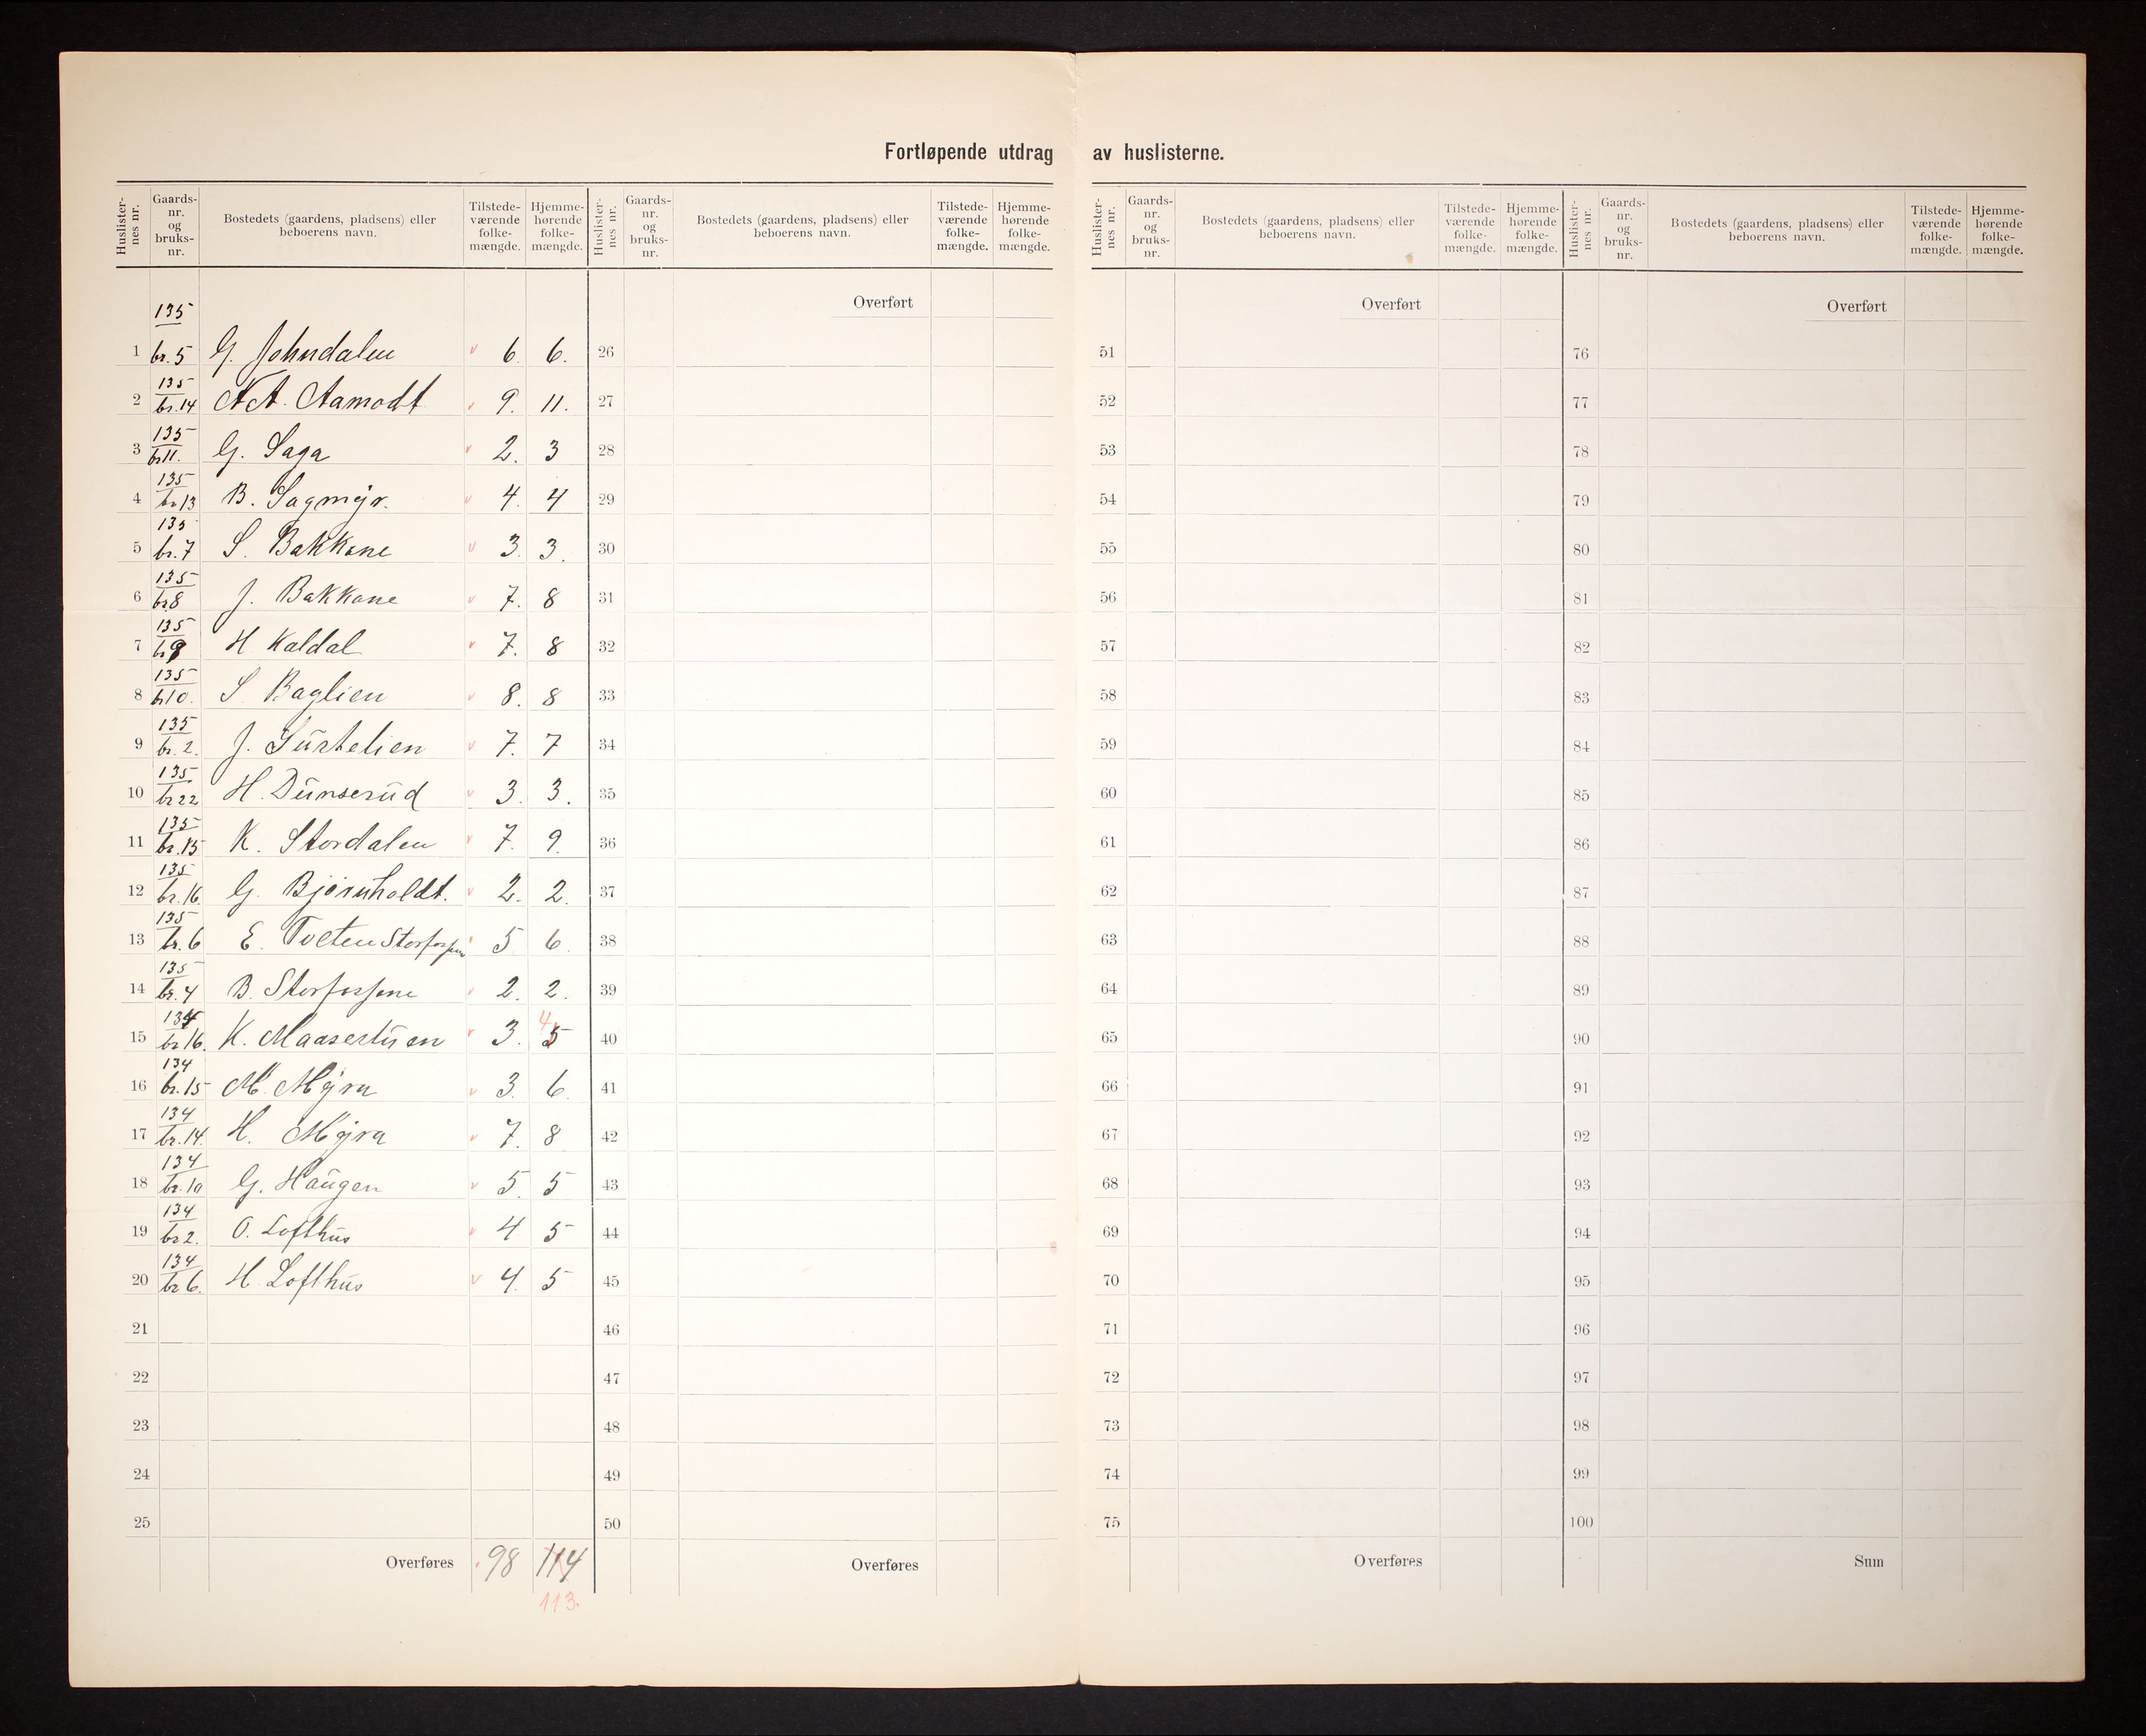 Fortløpende utdrag av huslisterne.
Huslisternes nr. Gaards-nr. og bruks-nr. Bostedets (gaardens, pladsens) eller beboerens navn. Tilstede-værende folke-mængde. Hjemme-hørende folke-mængde.
Huslisternes nr. Gaards-nr. og bruks-nr. Bostedets (gaardens, pladsens) eller beboerens navn. Tilstede-værende folke-mængde. Hjemme-hørende folke-mængde.
Huslisternes nr. Gaards-nr. og bruks-nr. Bostedets (gaardens, pladsens) eller beboerens navn. Tilstede-værende folke-mængde. Hjemme-hørende folke-mængde.
Huslisternes nr. Gaards-nr. og bruks-nr. Bostedets (gaardens, pladsens) eller beboerens navn. Tilstede-værende folke-mængde. Hjemme-hørende folke-mængde.
Overført Overført Overført
1 135 br. 5 G. Johndalen 6. 6. 26 51 76
2 135 br. 14 A. Aamodt 9. 11. 27 52 77
3 135 br 11. G. Saga 2. 3 28 53 78
4 135 br 13 B. Sagmyr. 4. 4 29 54 79
5 135 br. 7 S. Bakkane 3. 3. 30 55 80
6 135 br 8 J. Bakkane 7. 8 31 56 81
7 135 br 9 H Kaldal 7. 8 32 57 82
8 135 br 10. S Baglien 8. 8 33 58 83
9 135 br. 2. J. Surtelien 7. 7 34 59 84
10 135 br 22 H. Dunserud 3. 3. 35 60 85
11 135 br. 15 K. Stordalen 7. 9. 36 61 86
12 135 br. 16. G. Bjørnholdt. 2. 2. 37 62 87
13 135 br. 6 E. Tveten Storfossen 5 6. 38 63 88
14 135 br. 4 B. Storfossene 2. 2. 39 64 89
15 134 br 16. K. Maasestuen 3. 5 4 40 65 90
16 134 br. 15 M. Myra 3. 6. 41 66 91
17 134 br. 14. H. Myra 7. 8 42 67 92
18 134 br. 10 G. Haugen 5. 5 43 68 93
19 134 br 2. O. Lofthus 4 5 44 69 94
20 134 br 6. H. Lofthus 4. 5 45 70 95
21 46 71 96
22 47 72 97
23 48 73 98
24 49 74 99
25 50 75 100
Overføres 98 114 Overføres Overføres Sum
113.